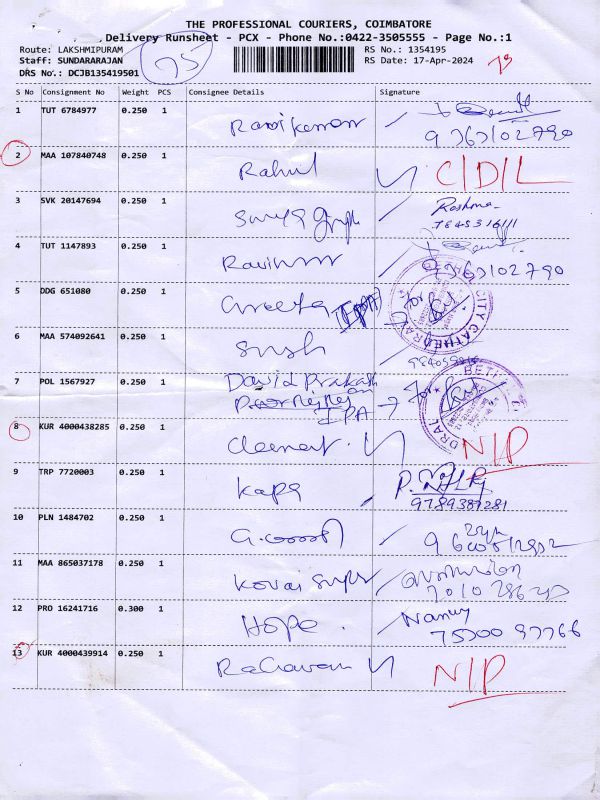 THE PROFESSIONAL COURIERS, COIMBATORE
Delivery Runsheet - PCX - Phone No.:0422-3505555 - Page No.:1
Route: LAKSHMIPURAM RS No.: 1354195
Staff: SUNDARARAJAN RS Date: 17-Apr-2024
DRS No.: DCJB135419501
75
S No Consignment No Weight PCS Consignee Details Signature
1 TUT 6784977 0.250 1 Ravikumar
9363102790
2 MAA 107840748 0.250 1 Rahul C/D/L
3 SVK 20147694 0.250 1 Surya Reshma
7845316111
4 TUT 1147893 0.250 1
9363102790
5 DDG 651080 0.250 1 Greeta IPA for
CITY CATHEDRAL
6 MAA 574092641 0.250 1 Sush
7 POL 1567927 0.250 1 David Prakash for
IPA
8 KUR 4000438285 0.250 1 Clement N/P
9 TRP 7720003 0.250 1 Kapa
9789387281
10 PLN 1484702 0.250 1
11 MAA 865037178 0.250 1 Kovai Super
12 PRO 16241716 0.300 1 HOPE. Nancy
75500 97766
13 KUR 4000439914 0.250 1 Ragavan N/P